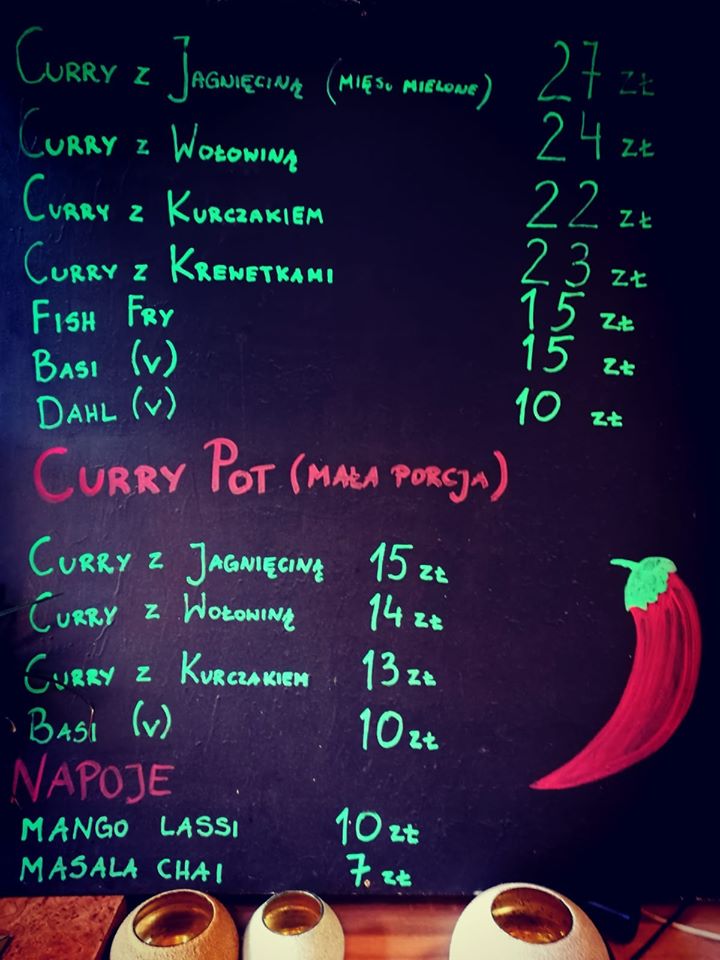 Curry z Jagnięciną (mięso mielone) 27 zł
Curry z Wołowiną 24 zł
Curry z Kurczakiem 22 zł
Curry z Krewetkami 23 zł
Fish Fry 15 zł
Basi (v) 15 zł
Dahl (v) 10 zł
Curry Pot (mała porcja)
Curry z Jagnięciną 15 zł
Curry z Wołowiną 14 zł
Curry z Kurczakiem 13 zł
Basi (v) 10 zł
NAPOJE
MANGO LASSI 10 zł
MASALA CHAI 7 zł